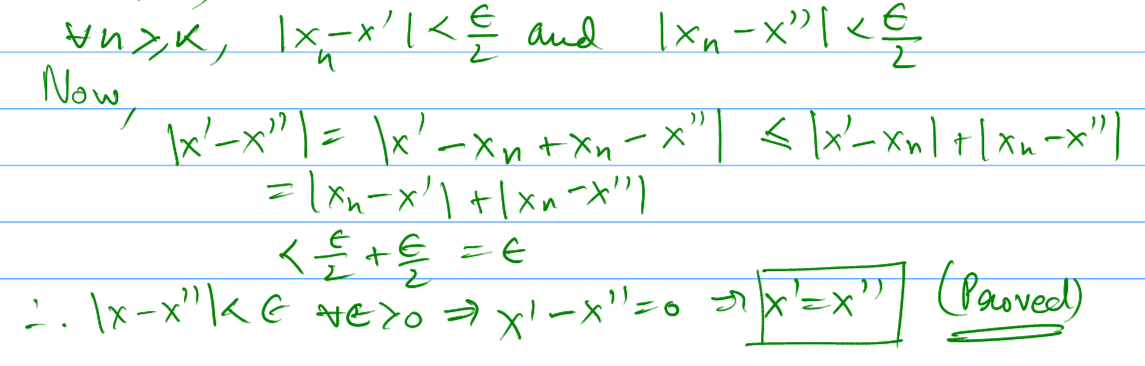 ∀n≥K, |xₙ-x'| < ϵ/2 and |xₙ-x''| < ϵ/2
Now,
|x'-x''| = |x'-xₙ+xₙ-x''| ≤ |x'-xₙ|+|xₙ-x''|
= |xₙ-x'|+|xₙ-x''|
< ϵ/2 + ϵ/2 = ϵ
∴ |x-x''| < ϵ ∀ϵ>0 ⇒ x'-x''=0 ⇒ x'=x'' (Proved)